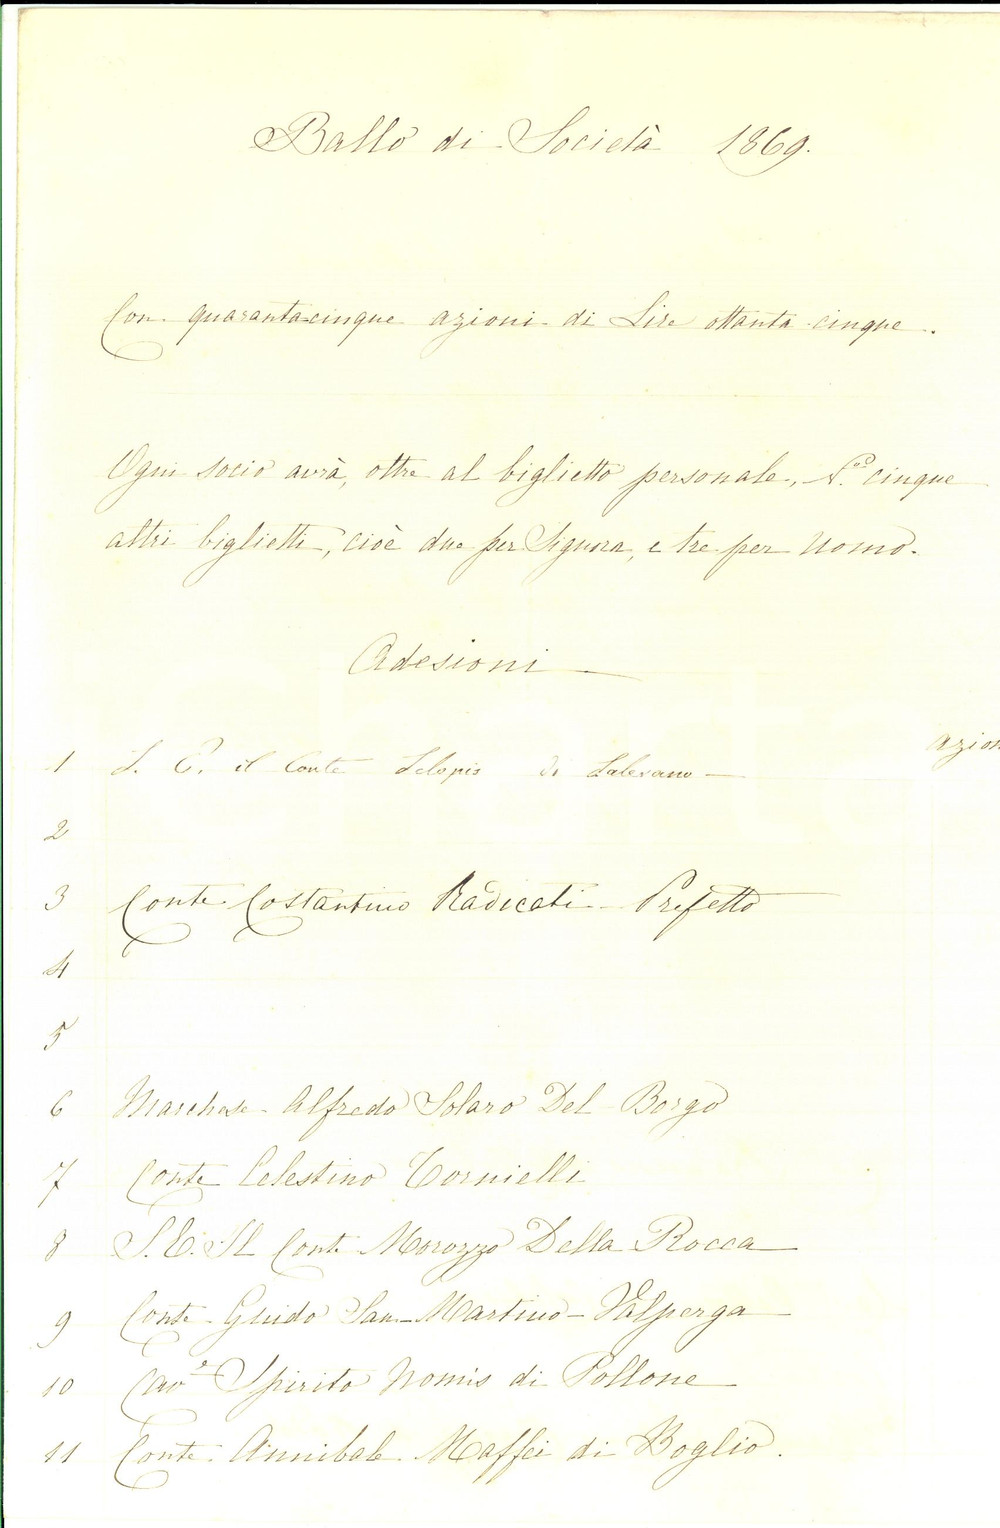 Ballo di Società 1869.
Con quarantacinque azioni di Lire ottanta cinque.
Ogni socio avrà, oltre al biglietto personale, N.° cinque
altri biglietti, cioè due per Signora, e tre per Uomo.
Adesioni
azion
1 S. E. il Conte Sclopis di Salerano
2
3 Conte Costantino Radicati Prefetto
4
5
6 Marchese Alfredo Solaro Del Borgo
7 Conte Celestino Tornielli
8 S. E. Il Conte Morozzo Della Rocca
9 Conte Guido San-Martino-Valperga
10 Cav.e Spirito Nomis di Pollone
11 Conte Annibale Maffei di Boglio.